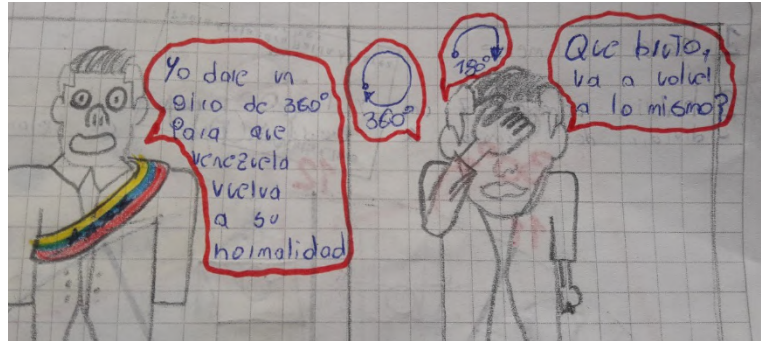 Yo dare un
giro de 360°
Para que
venezuela
vuelva
a su
normalidad
360°
180°
Que bruto,
va a volver
a lo mismo?